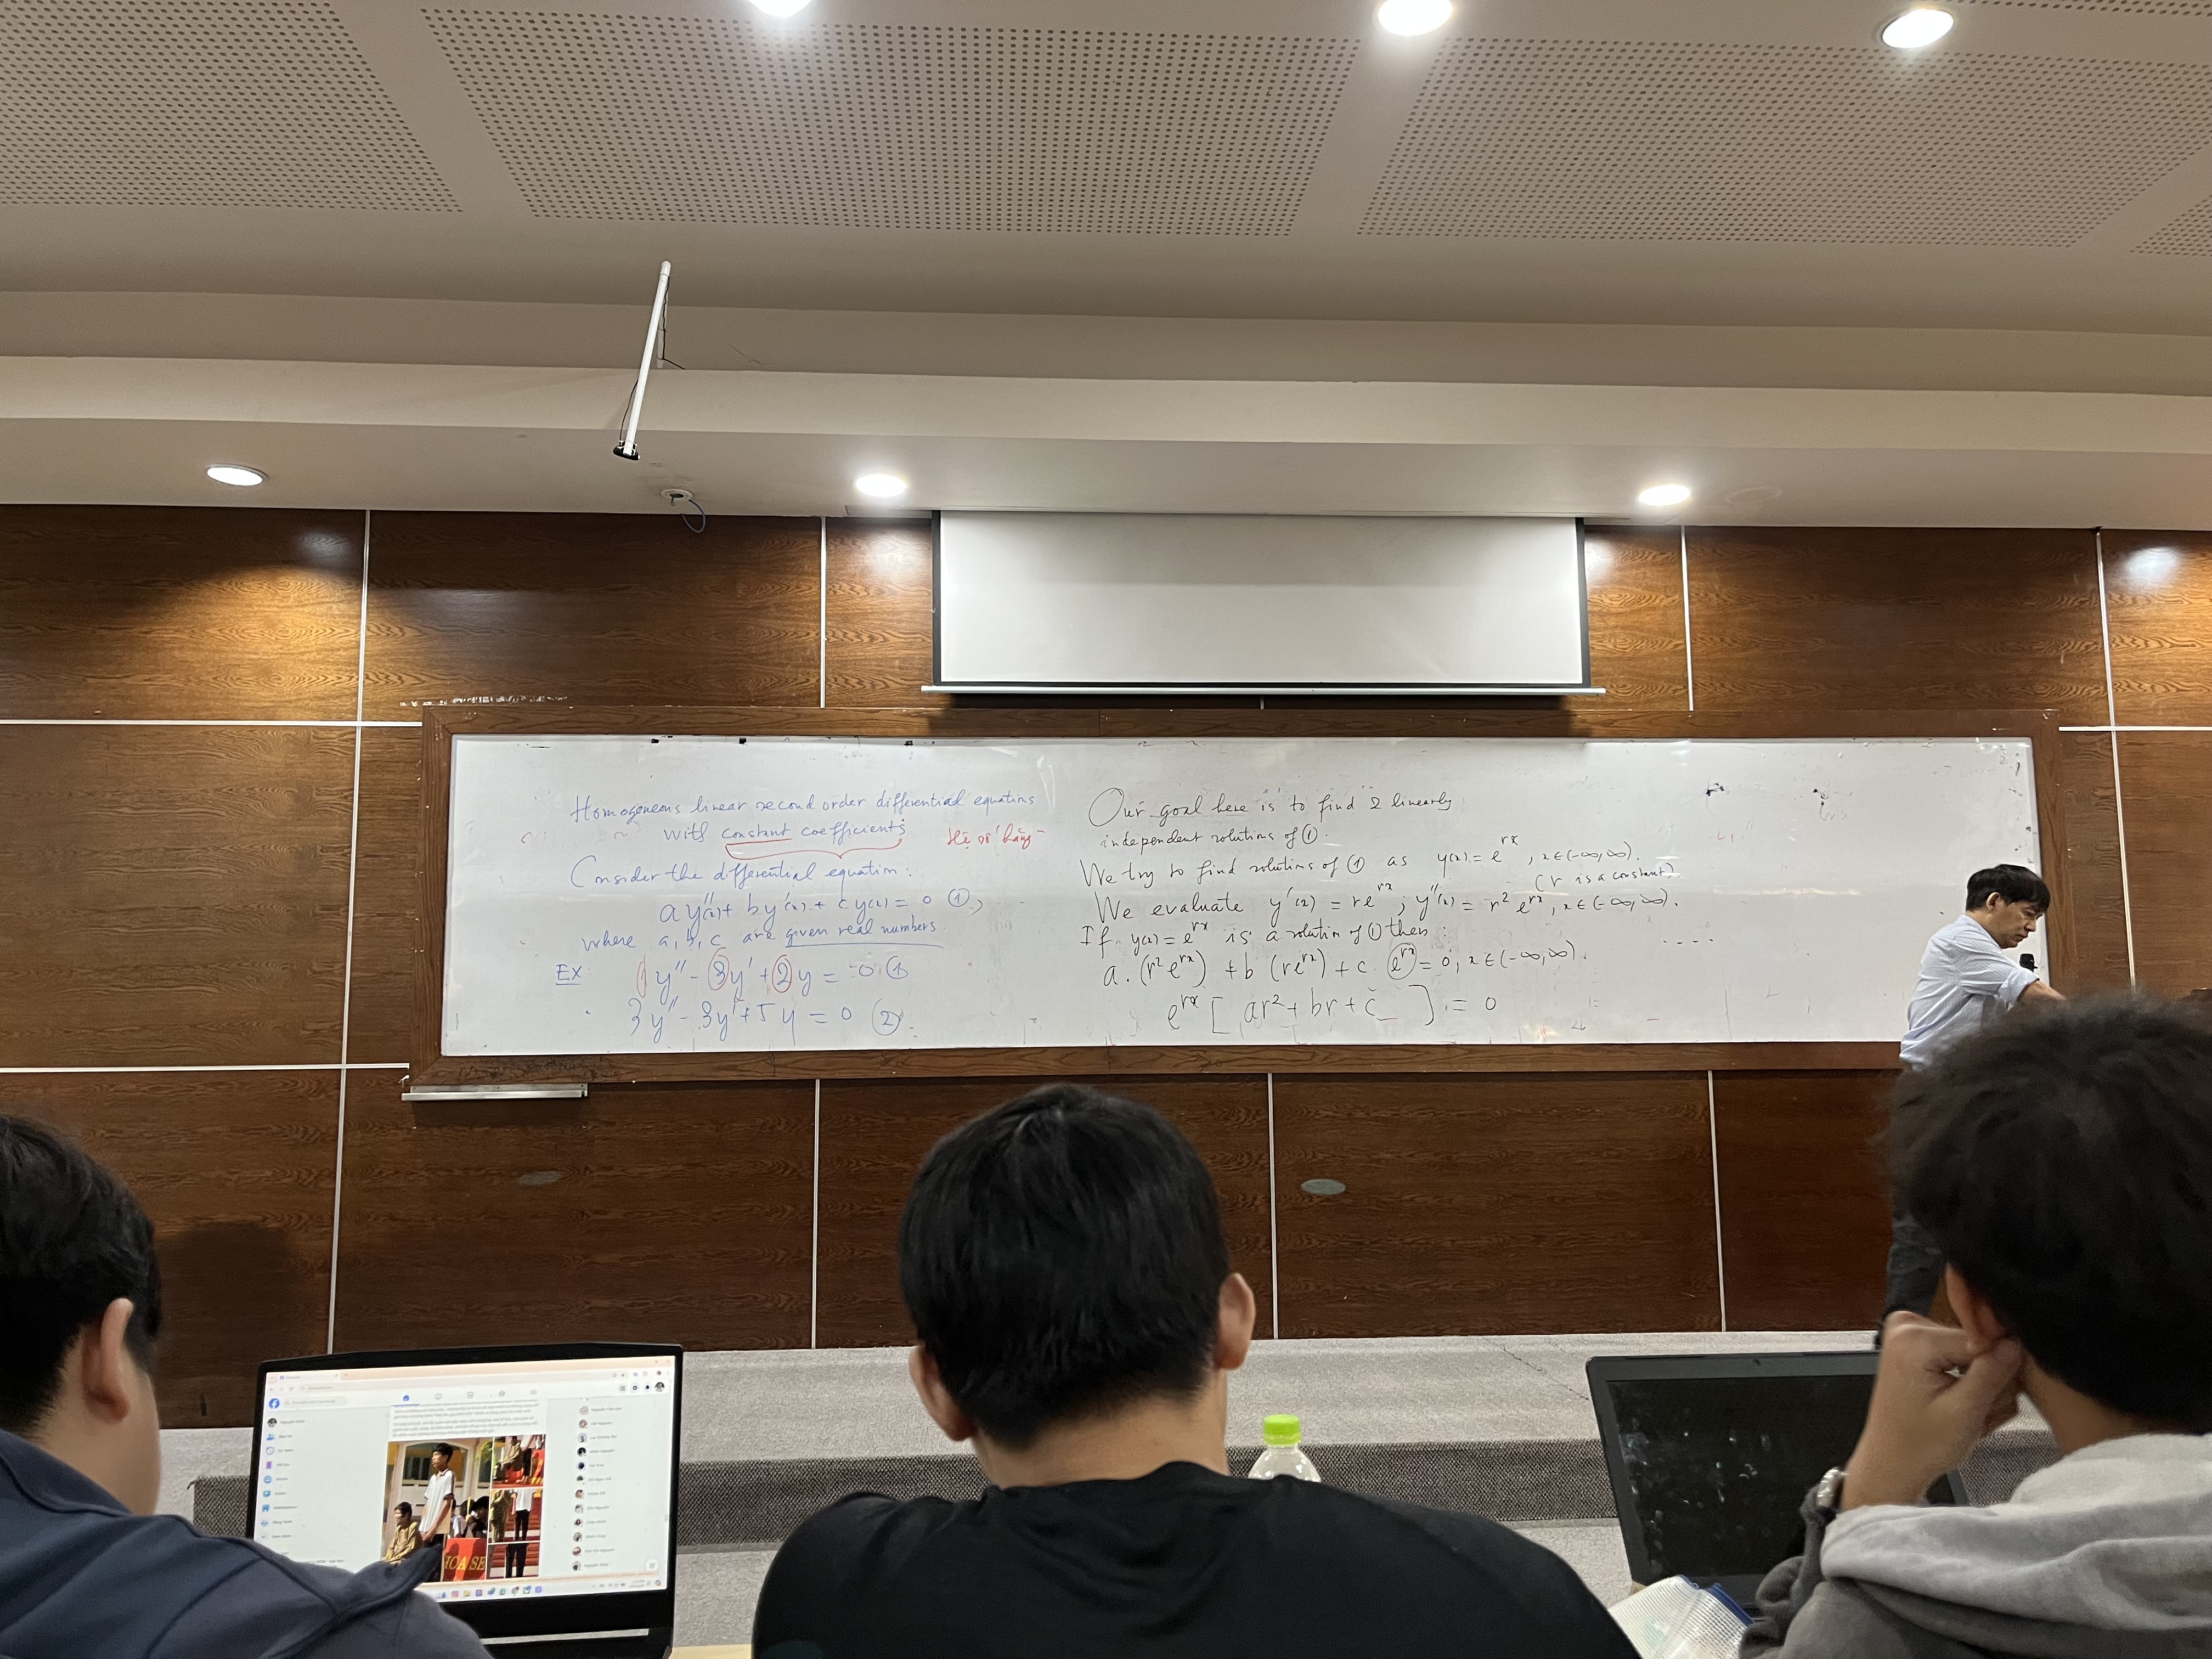 Homogeneous linear second order differential equations
with constant coefficients Hệ số hằng
Consider the differential equation:
ay''(x) + by'(x) + cy(x) = 0 ①,
where a, b, c are given real numbers.
EX: 1y'' - 3y' + 2y = 0 ①
3y'' - 3y' + 5y = 0 ②.
Our goal here is to find 2 linearly
independent solutions of ①.
We try to find solutions of ① as y(x) = e^{rx}, x ∈ (-∞, ∞).
(r is a constant)
We evaluate y'(x) = re^{rx}; y''(x) = r² e^{rx}, x ∈ (-∞, ∞).
If y(x) = e^{rx} is a solution of ① then:
a. (r² e^{rx}) + b (re^{rx}) + c. e^{rx} = 0, x ∈ (-∞, ∞).
e^{rx} [ar² + br + c] = 0
HOA SE